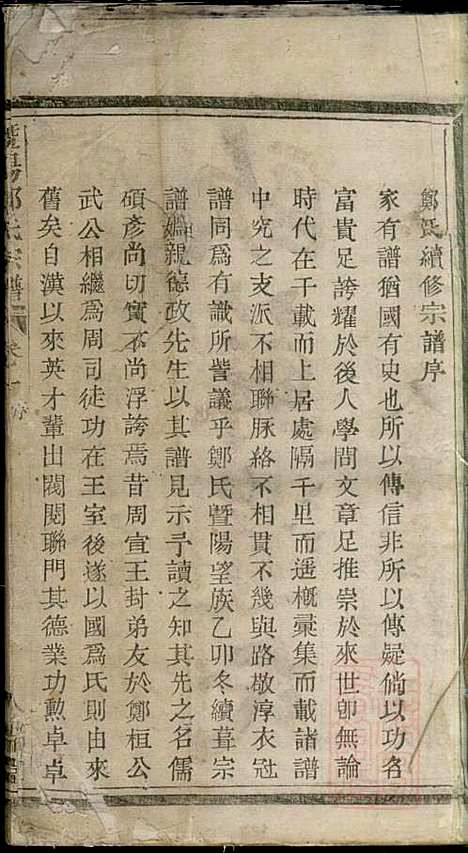 鄭氏續修宗譜序
家有譜猶國有史也所以傳信非所以傳疑倘以功名
富貴足誇耀於後人學問文章足推崇於來世卽無論
時代在千載而上居處隔千里而遥概彚集而載諸譜
中究之支派不相聯脉絡不相貫不幾與路敬淳衣冠
譜同爲有識所訾議乎鄭氏暨陽望族乙卯冬續葺宗
譜姻親德政先生以其譜見示予讀之知其先之名儒
碩彥尚切實不尚浮誇焉昔周宣王封弟友於鄭桓公
武公相繼爲周司徒功在王室後遂以國爲氏則由來
舊矣自漢以來英才輩出閥閱聯門其德業功勲卓卓
暨陽鄭氏宗譜 卷一 序